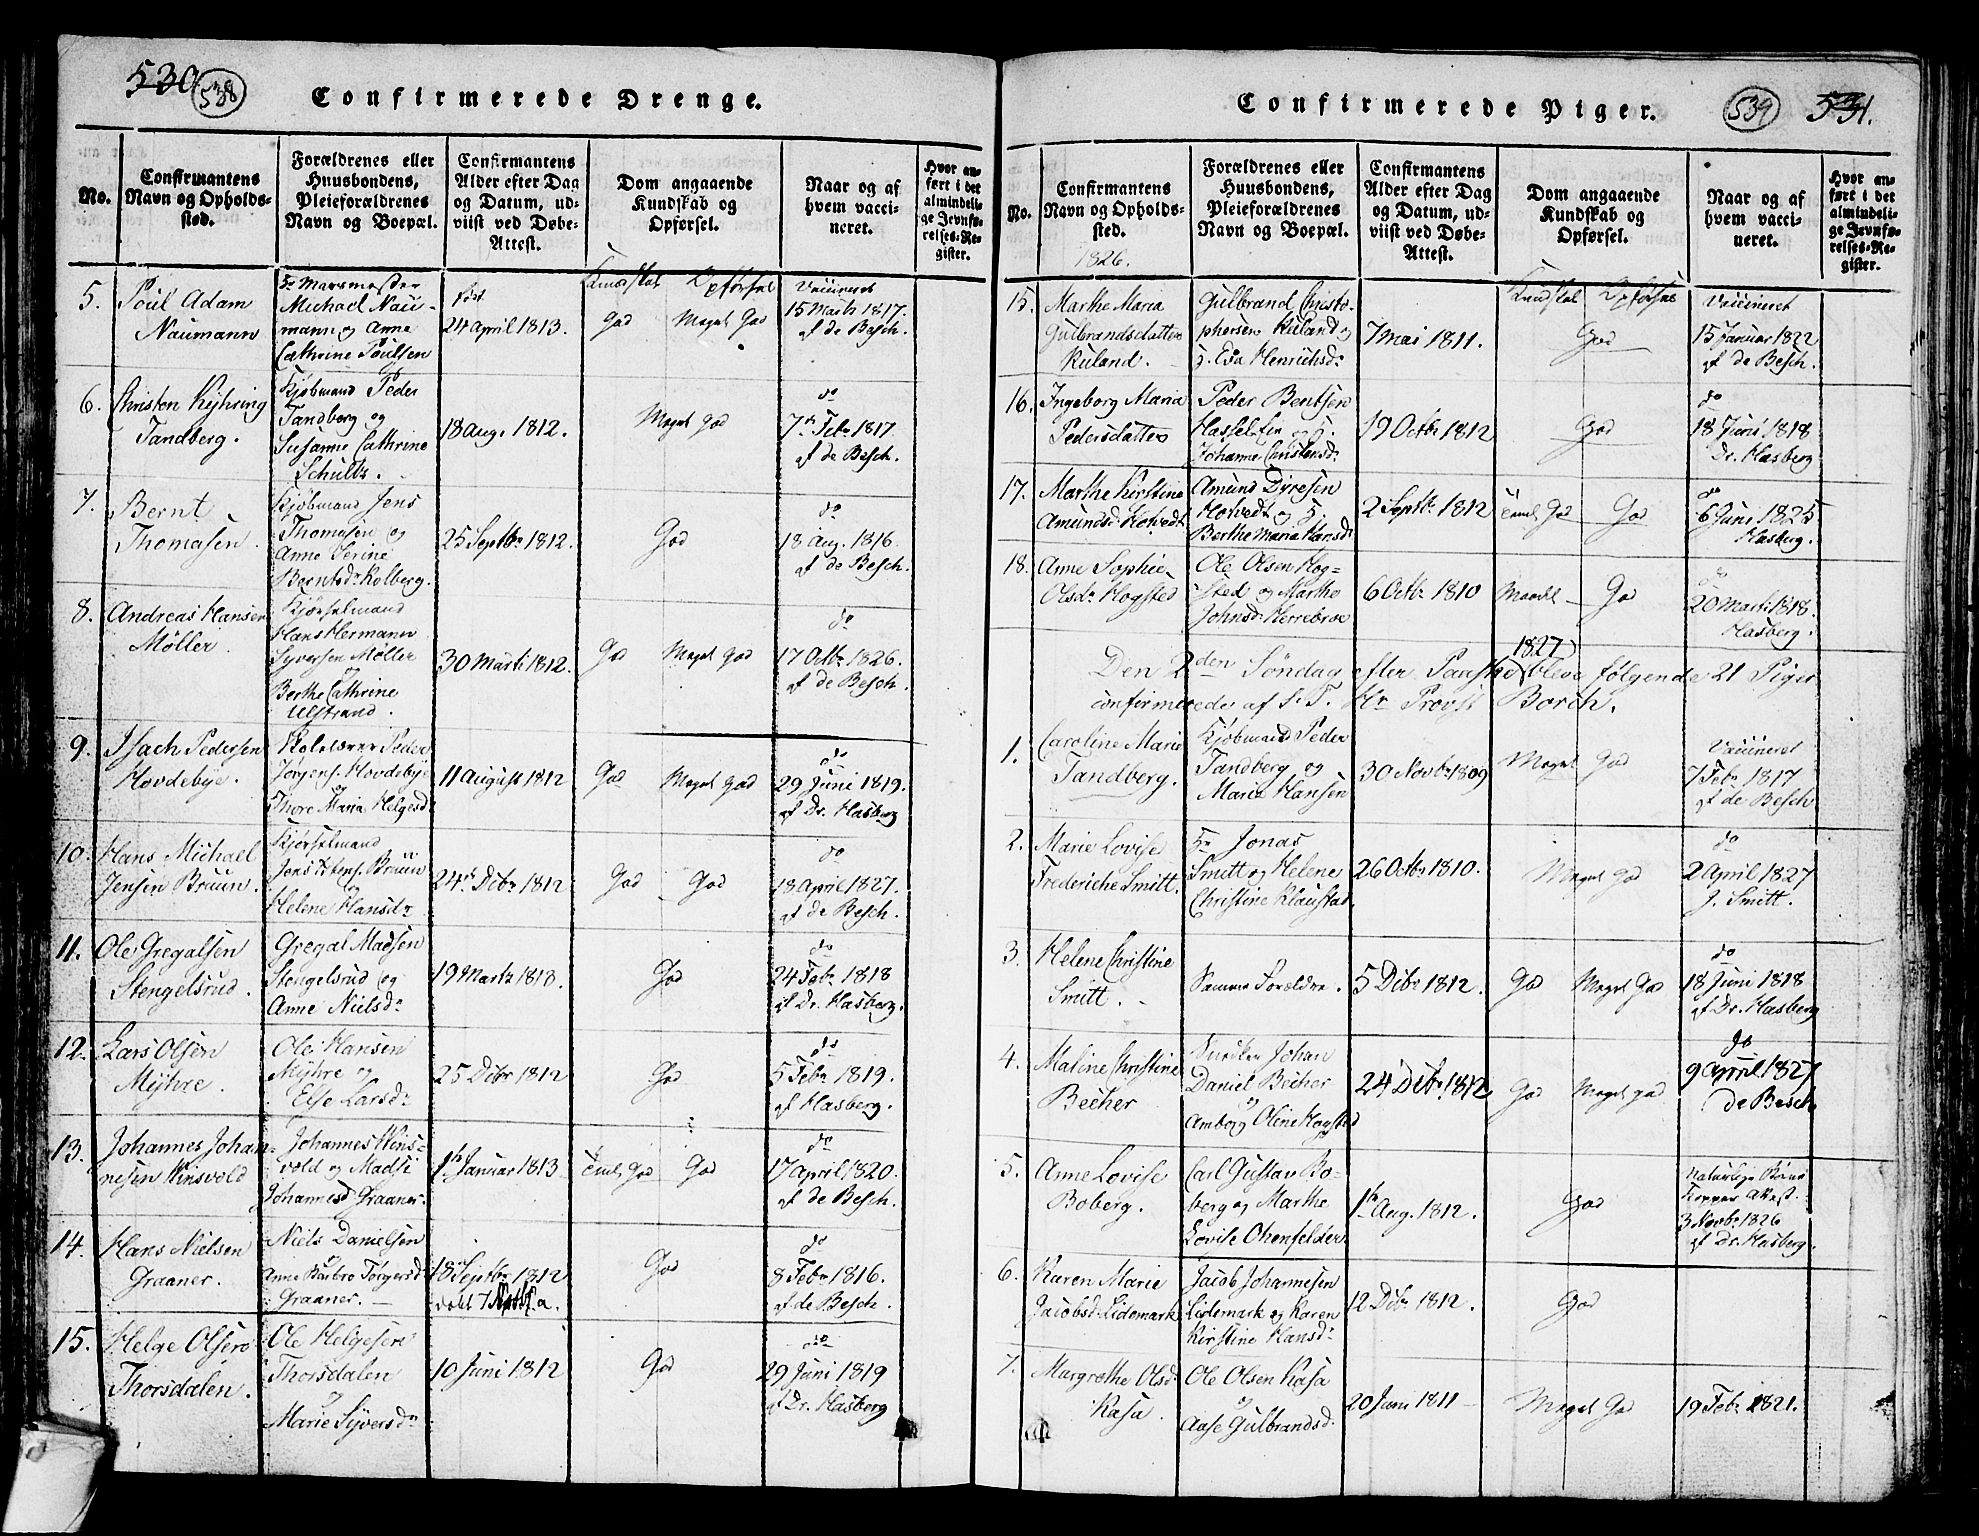 530
538
Confirmerede Drenge.
No.
Confirmantens
Navn og Opholds-
sted.
Forældrenes eller
Huusbondens,
Pleieforældrenes
Navn og Boepæl.
Confirmantens
Alder efter Dag
og Datum, ud-
viist ved Døbe-
Attest.
Dom angaaende
Kundskab og
Opførsel.
Naar og af
hvem vacci-
neret.
Hvor an-
ført i det
almindeli-
ge Jevnfø-
relses-Re-
gister.
Kundskab Opførsel
5.
Poul Adam
Naumann
Michael Nau-
mann og Anne
Cathrine Poulsen
født
24 April 1813.
God Meget God
Vaccineret
15 Marts 1817.
af de Besch.
6.
Christen Kyhring
Tandberg.
Kjøbmand Peder
Tandberg og
Susanne Cathrine
Schultz.
18 Aug. 1812.
Meget God
do
7de Febr 1817
af de Besch.
7.
Bernt
Thomasen.
Kjøbmand Jens
Thomasen og
Anne Serine
Berntsdr Kolberg.
25 Septbr 1812.
God
do
18 Aug. 1816.
af de Besch.
8.
Andreas Hansen
Møller.
Kjørselmand
Hans Hermann
Syversen Møller
og
Berthe Cathrine
Ulstrand.
30 Marti 1812.
God Meget God
do
17 Octbr 1826.
af de Besch.
9.
Isach Pedersen
Hovdebye.
Peder
Jørgens. Hovdebye
og
Thore Maria Helgesdr
11 August 1812
God Meget God
do
29 Juni 1819.
af Dr. Hasberg
10.
Hans Michael
Jensen Bruun.
Kjørselmand
Jens Bruun
og
Helene Hansdr
24de Debr 1812
God God
do
18 April 1827.
af de Besch.
11.
Ole Gregalsen
Stengelsrud.
Gregal Madsen
Stengelsrud og
Anne Nielsdr
19 Marts 1813.
God
do
24 Febr 1818
af Dr. Hasberg.
12.
Lars Olsen
Myhre.
Ole Hansen
Myhre og
Else Larsdr
25 Debr 1812
God
do
5 Febr 1819.
af Hasberg.
13.
Johannes Johan-
nesen Kinsvold
Johannes Kins-
vold og Madsi
Johannesd Graaner.
1te Januar 1813.
Teml. God God
do
17 April 1820.
af de Besch.
14.
Hans Nielsen
Graaner.
Niels Danielsen
og
Anne Barbro Torgersd
Graaner.
18 Septbr 1812
God
do
8 Febr 1816.
af de Besch.
15.
Helge Olsen
Thorsdalen.
Ole Helgesen
Thorsdalen
og
Marie Syversdr
10 Juni 1812
God
do
29 Juni 1819
af Dr. Hasberg
Confirmerede Piger.
539
531.
No.
Confirmantens
Navn og Opholds-
sted.
1826.
Forældrenes eller
Huusbondens,
Pleieforældrenes
Navn og Boepæl.
Confirmantens
Alder efter Dag
og Datum, ud-
viist ved Døbe-
Attest.
Dom angaaende
Kundskab og
Opførsel.
Naar og af
hvem vacci-
neret.
Hvor an-
ført i det
almindeli-
ge Jevnfø-
relses-Re-
gister.
Kundskab Opførsel
15.
Marthe Maria
Gulbrandsdatter
Ruland.
Gulbrand Christo-
phersen Ruland og
H. Eva Henrichsdr
7 Mai 1811.
God
Vaccineret
15 Januar 1822
af de Besch.
16.
Ingeborg Maria
Pedersdatter
Peder Bentsen
og H.
Johanne Christensdr
19 Octbr 1812
God
do
18 Juni 1818
Dr. Hasberg
17.
Marthe Kirstine
Amundsd. Hotvedt
Amund Dyresen
Hotvedt og H.
Berthe Maria Hansdr
2 Septbr 1812
Teml. God God
do
6 Juni 1825
Hasberg.
18.
Anne Sophie
Olsdr Hogsted
Ole Olsen Hog-
sted og Marthe
Johnsd. Herrebroe
6 Octbr 1810
Maadel. God
do
20 Marti 1818.
Hasberg.
1827
Den 2den Søndag efter Paaske bleve følgende 21 Piger
confirmerede af S. T. Hr Provst Borch.
1.
Caroline Marie
Tandberg.
Kjøbmand Peder
Tandberg og
Maria Hansen
30 Novbr 1809
Meget God
Vaccineret
7 Febr 1817
af de Besch
2.
Marie Lovise
Frederiche Smitt.
Hr Jonas
Smitt og Helene
Christine Klaustad.
26 Octbr 1810.
Meget God
do
2 April 1827
J. Smitt.
3.
Helene Christine
Smitt.
Samme Forældre.
5 Debr 1812.
God Meget God
do
18 Juni 1818
af Dr. Hasberg
4.
Maline Christine
Becher
Snedker Johan
Daniel Becher
og
Amborg Oline Hogsted
24 Debr 1812
God Meget God
do
9 April 1827
de Besch
5.
Anne Lovise
Boberg.
Carl Gustav Bo-
berg og Marthe
Lovise Ohenfelder
1te Aug. 1812.
God
Naturlige Børne
Kopper Attest.
3 Novbr 1826
af Dr. Hasberg.
6.
Karen Marie
Jacobsd. Lidemark
Jacob Johannesen
Lidemark og Karen
Kirstine Hansdr
12 Debr 1812.
God
7.
Margrethe Olsd
Kasa.
Ole Olsen Kasa
og
Aase Gulbrandsd.
20 Juni 1811
Meget God
19 Febr 1821.